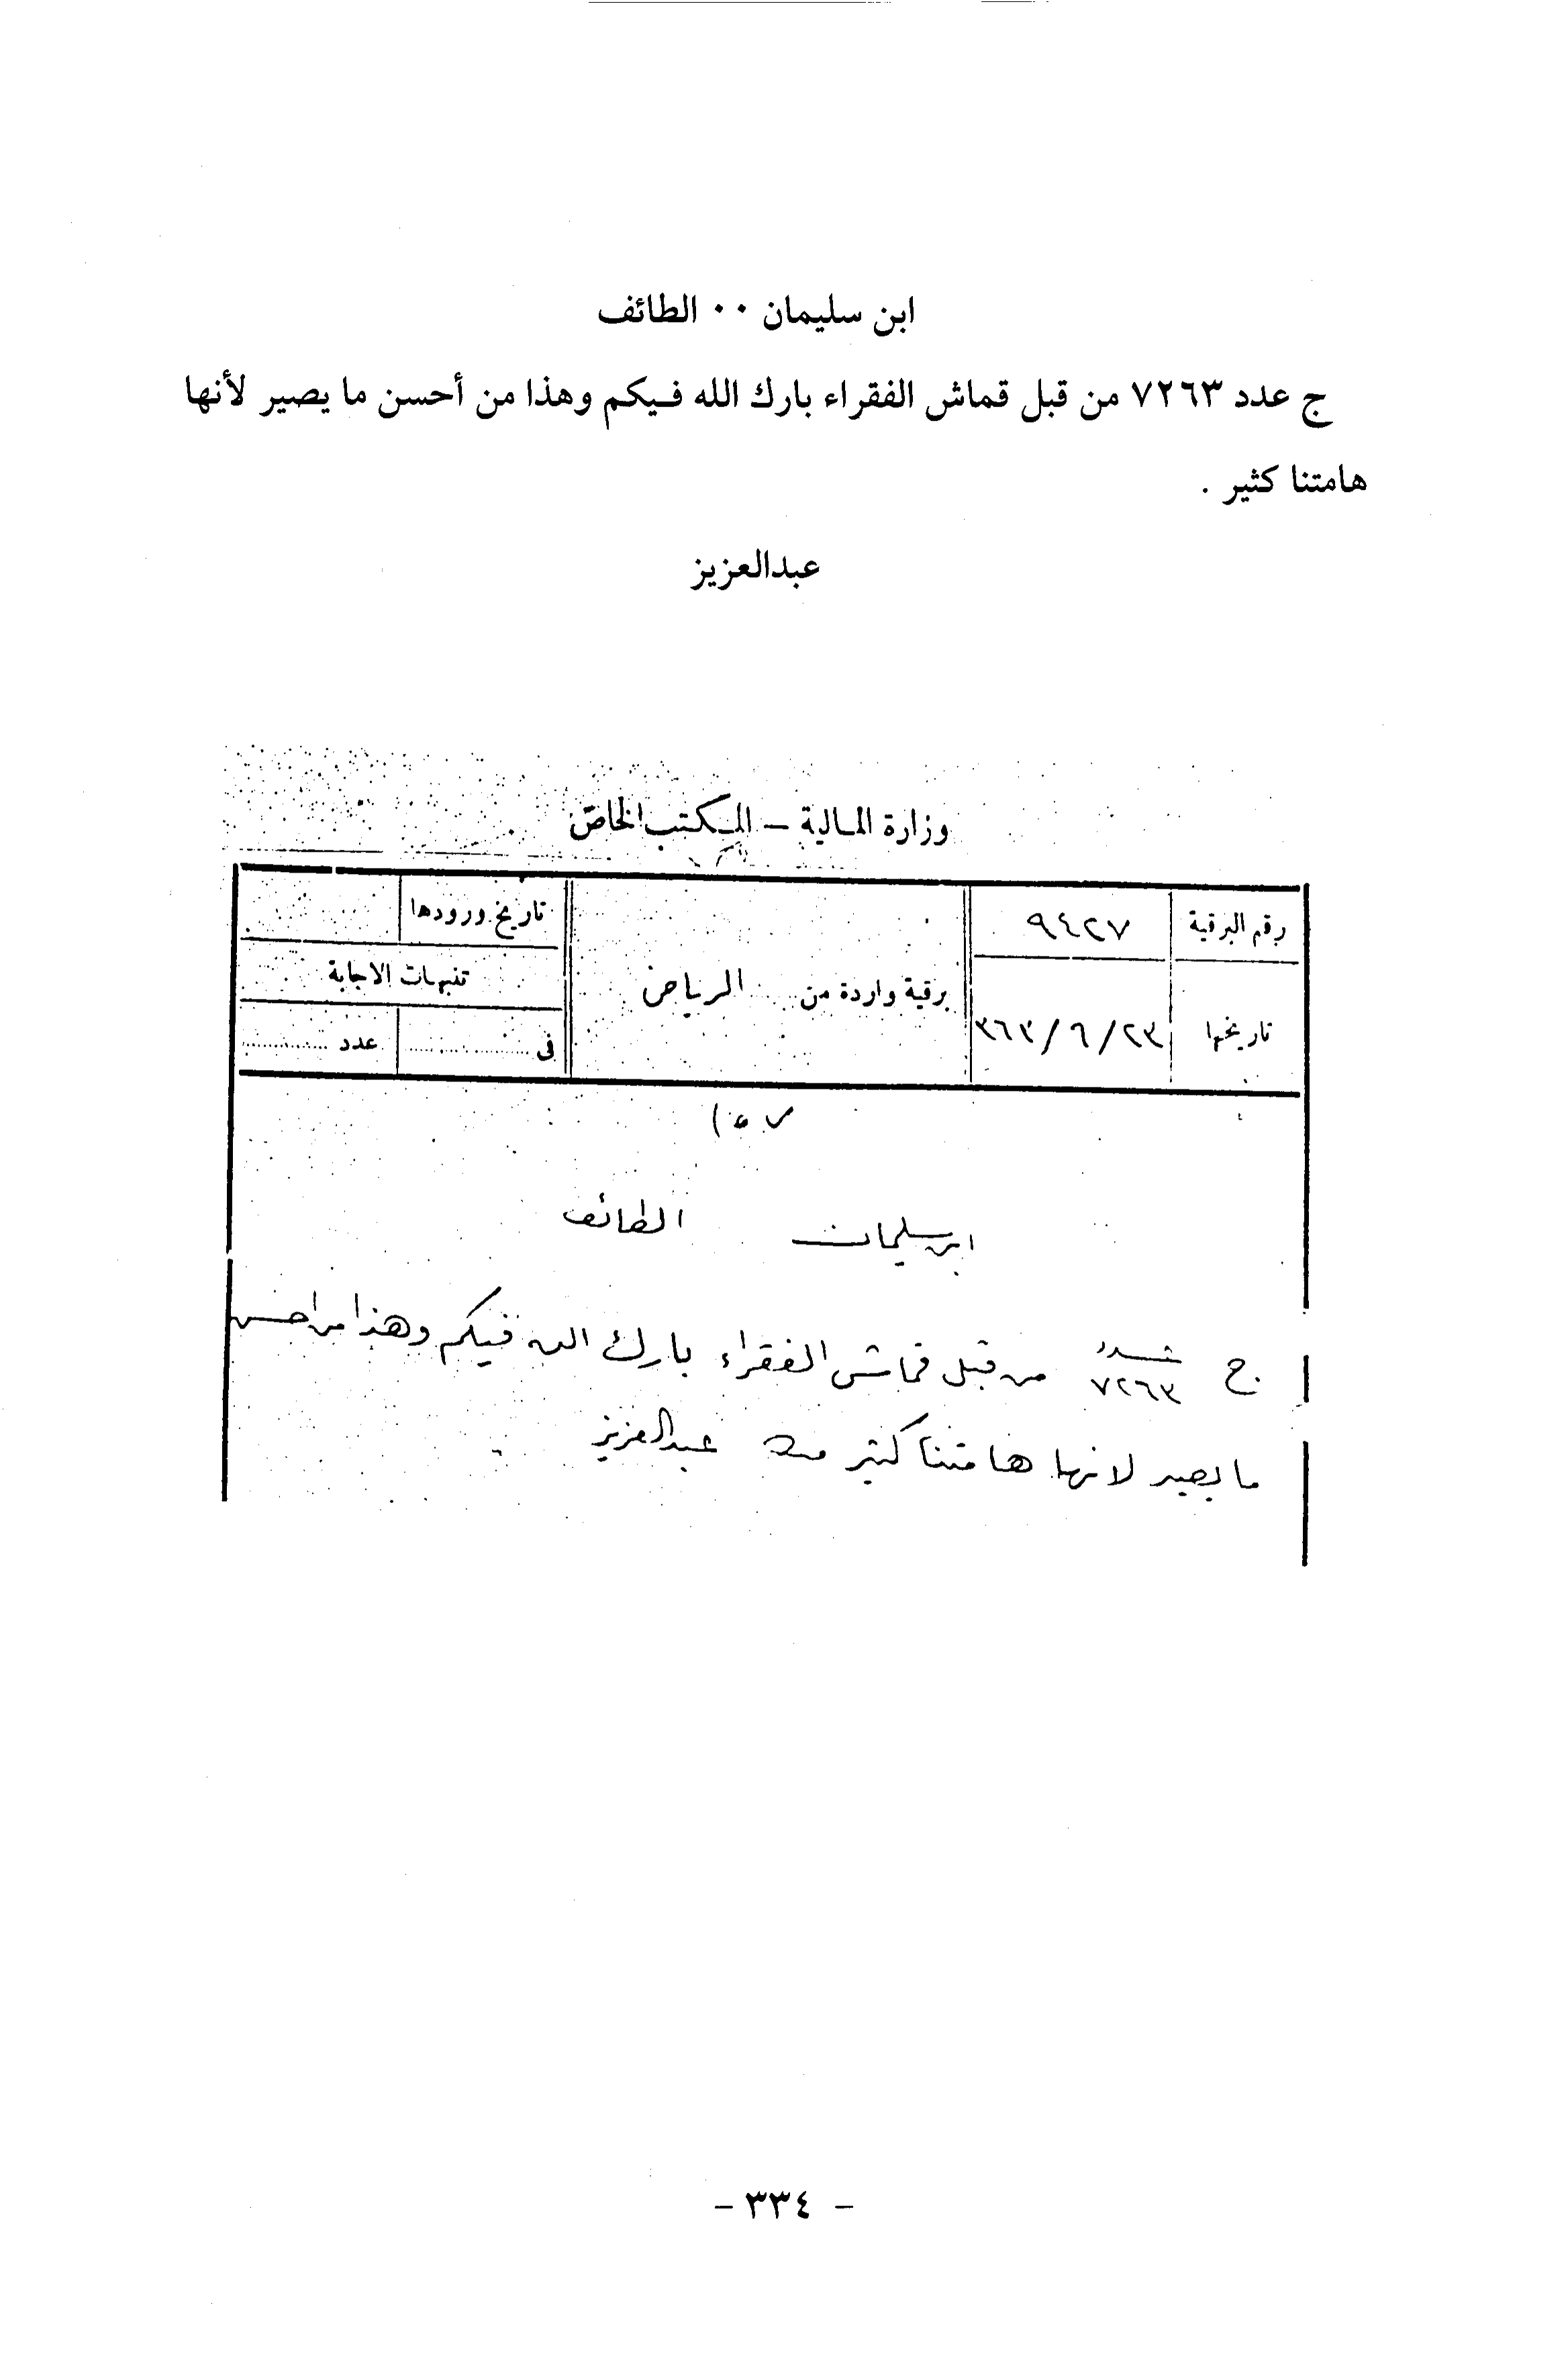 ابن سليمان ٠٠ الطائف
ج عدد ٧٢٦٣ من قبل قماش الفقراء بارك الله فيكم وهذا من أحسن ما يصير لأنها
هامتنا كثير .
عبدالعزيز
وزارة المالية – المكتب الخاص
رقم البرقية ٩٤٢٧
تاريخها ٣٦٣/٦/٢٣
برقية واردة من الرياض
تاريخ ورودها
تنبيهات الاجابة
في عدد
ابن سليمان الطائف
ج عدد ٧٢٦٣ من قبل قماش الفقراء بارك الله فيكم وهذا من احسن
ما يصير لانها هامتنا كثير عبدالعزيز
- ٣٣٤ -